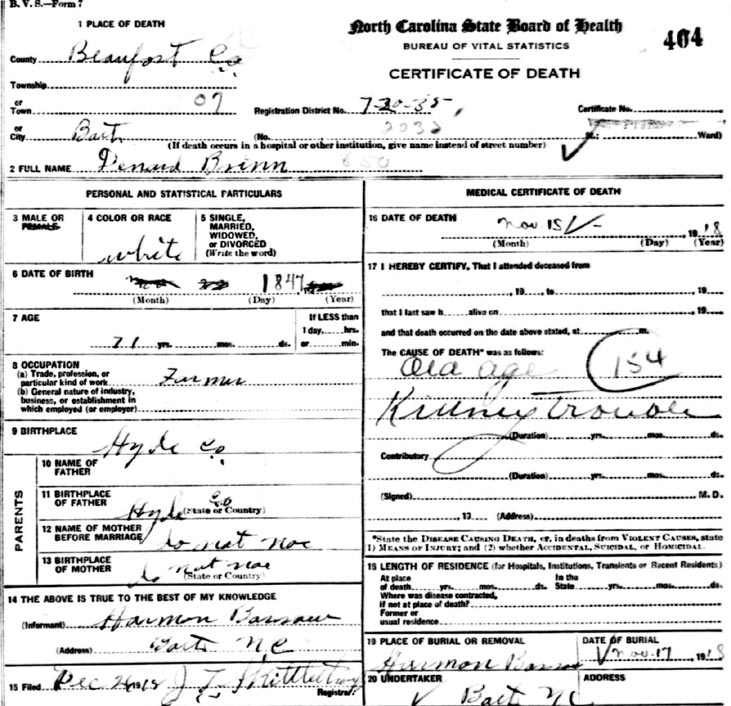 B. V. S.—Form 7
1 PLACE OF DEATH
North Carolina State Board of Health
BUREAU OF VITAL STATISTICS
404
CERTIFICATE OF DEATH
County Beaufort Co
Township
or
Town 07
Registration District No. 7-20-35
Certificate No.
or
City Bath
(No. St.; Ward)
(If death occurs in a hospital or other institution, give name instead of street number)
2 FULL NAME Brinn
PERSONAL AND STATISTICAL PARTICULARS
3 MALE OR FEMALE
4 COLOR OR RACE
white
5 SINGLE,
MARRIED,
WIDOWED,
or DIVORCED
(Write the word)
6 DATE OF BIRTH 1847
(Month) (Day) (Year)
7 AGE
71 yrs. mos. ds.
If LESS than
1 day, hrs.
or min.
8 OCCUPATION
(a) Trade, profession, or
particular kind of work Farmer
(b) General nature of industry,
business, or establishment in
which employed (or employer)
9 BIRTHPLACE
Hyde Co
PARENTS
10 NAME OF
FATHER
11 BIRTHPLACE
OF FATHER Hyde Co
(State or Country)
12 NAME OF MOTHER
BEFORE MARRIAGE do not noe
13 BIRTHPLACE
OF MOTHER do not noe
(State or Country)
14 THE ABOVE IS TRUE TO THE BEST OF MY KNOWLEDGE
(Informant) Harmon
(Address) Bath NC
15 Filed Dec 1918 J T
Registrar
MEDICAL CERTIFICATE OF DEATH
16 DATE OF DEATH Nov. 15 1918
(Month) (Day) (Year)
17 I HEREBY CERTIFY, That I attended deceased from
, 19 , to , 19
that I last saw h alive on 19
and that death occurred on the date above stated, at m.
The CAUSE OF DEATH* was as follows:
Old age 154
Kidney trouble
(Duration) yrs. mos. ds.
Contributory
(Duration) yrs. mos. ds.
(Signed) M. D.
, 19 (Address)
*State the DISEASE CAUSING DEATH, or, in deaths from VIOLENT CAUSES, state
1) MEANS OF INJURY; and (2) whether ACCIDENTAL, SUICIDAL, or HOMICIDAL.
18 LENGTH OF RESIDENCE (for Hospitals, Institutions, Transients or Recent Residents)
At place
of death yrs. mos. ds.
In the
State yrs. mos. ds.
Where was disease contracted,
if not at place of death?
Former or
usual residence
19 PLACE OF BURIAL OR REMOVAL
Harmon
DATE OF BURIAL
Nov. 17 1918
20 UNDERTAKER
ADDRESS
Bath NC